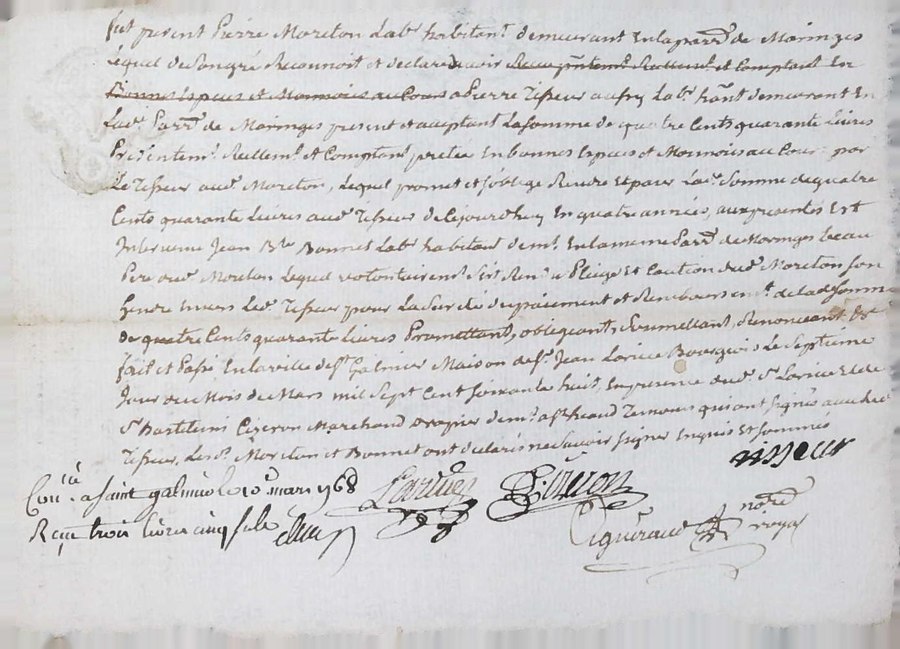 fut present Pierre Moreton Labr habitant demeurant En la parr. de Maringes
Lequel de Son gré Reconnoit et declare devoir Reellemt et Comptant En
Bonnes Especes et Monnoies au Cours a Pierre Tisseur Labr hant demeurant En
Lade Parr. de Maringes present et aceptant La somme de quatre Cents quarante Livres
Presentemt Reellemt et Comptant pretée En bonnes Especes et Monnoies au Cours par
Le Tisseur audt Moreton, Lequel promet et s'oblige Rendre Et paier Lade Somme de quatre
Cents quarante Livres audt Tisseur de Ce jourdhuy En quatre années, aux presentes Est
Intervenu Jean Bte Bonnet Labr habitant demt En la meme Parr. de Maringes beau
Pere dudt Moreton Lequel volontairemt S'est Rendu Pleige Et Caution dudt Moreton Son
gendre Envers Ledt Tisseur pour La Sureté du paiement et Remboursemt de lade Somme
de quatre Cents quarante Livres Promettant, obligeant, Soumettant, Renonceant
fait et Passé En la ville de St Galmier Maison de Sr Jean Bourgeois Le Septieme
Jour du Mois de Mars mil Sept Cent Soixante huit, En presence dudt Sr
Sr Ciceron Marchand Drapier demt a St Temoins qui ont Signés avec Le
Tisseur, Les dt Moreton et Bonnet ont declarés ne Savoir Signer Enquis Et Sommés
tisseur
Conlé a Saint galmier le 10 mars 1768
Reçu trois livres cinq sols
Ciceron
Pigueraud nore royal